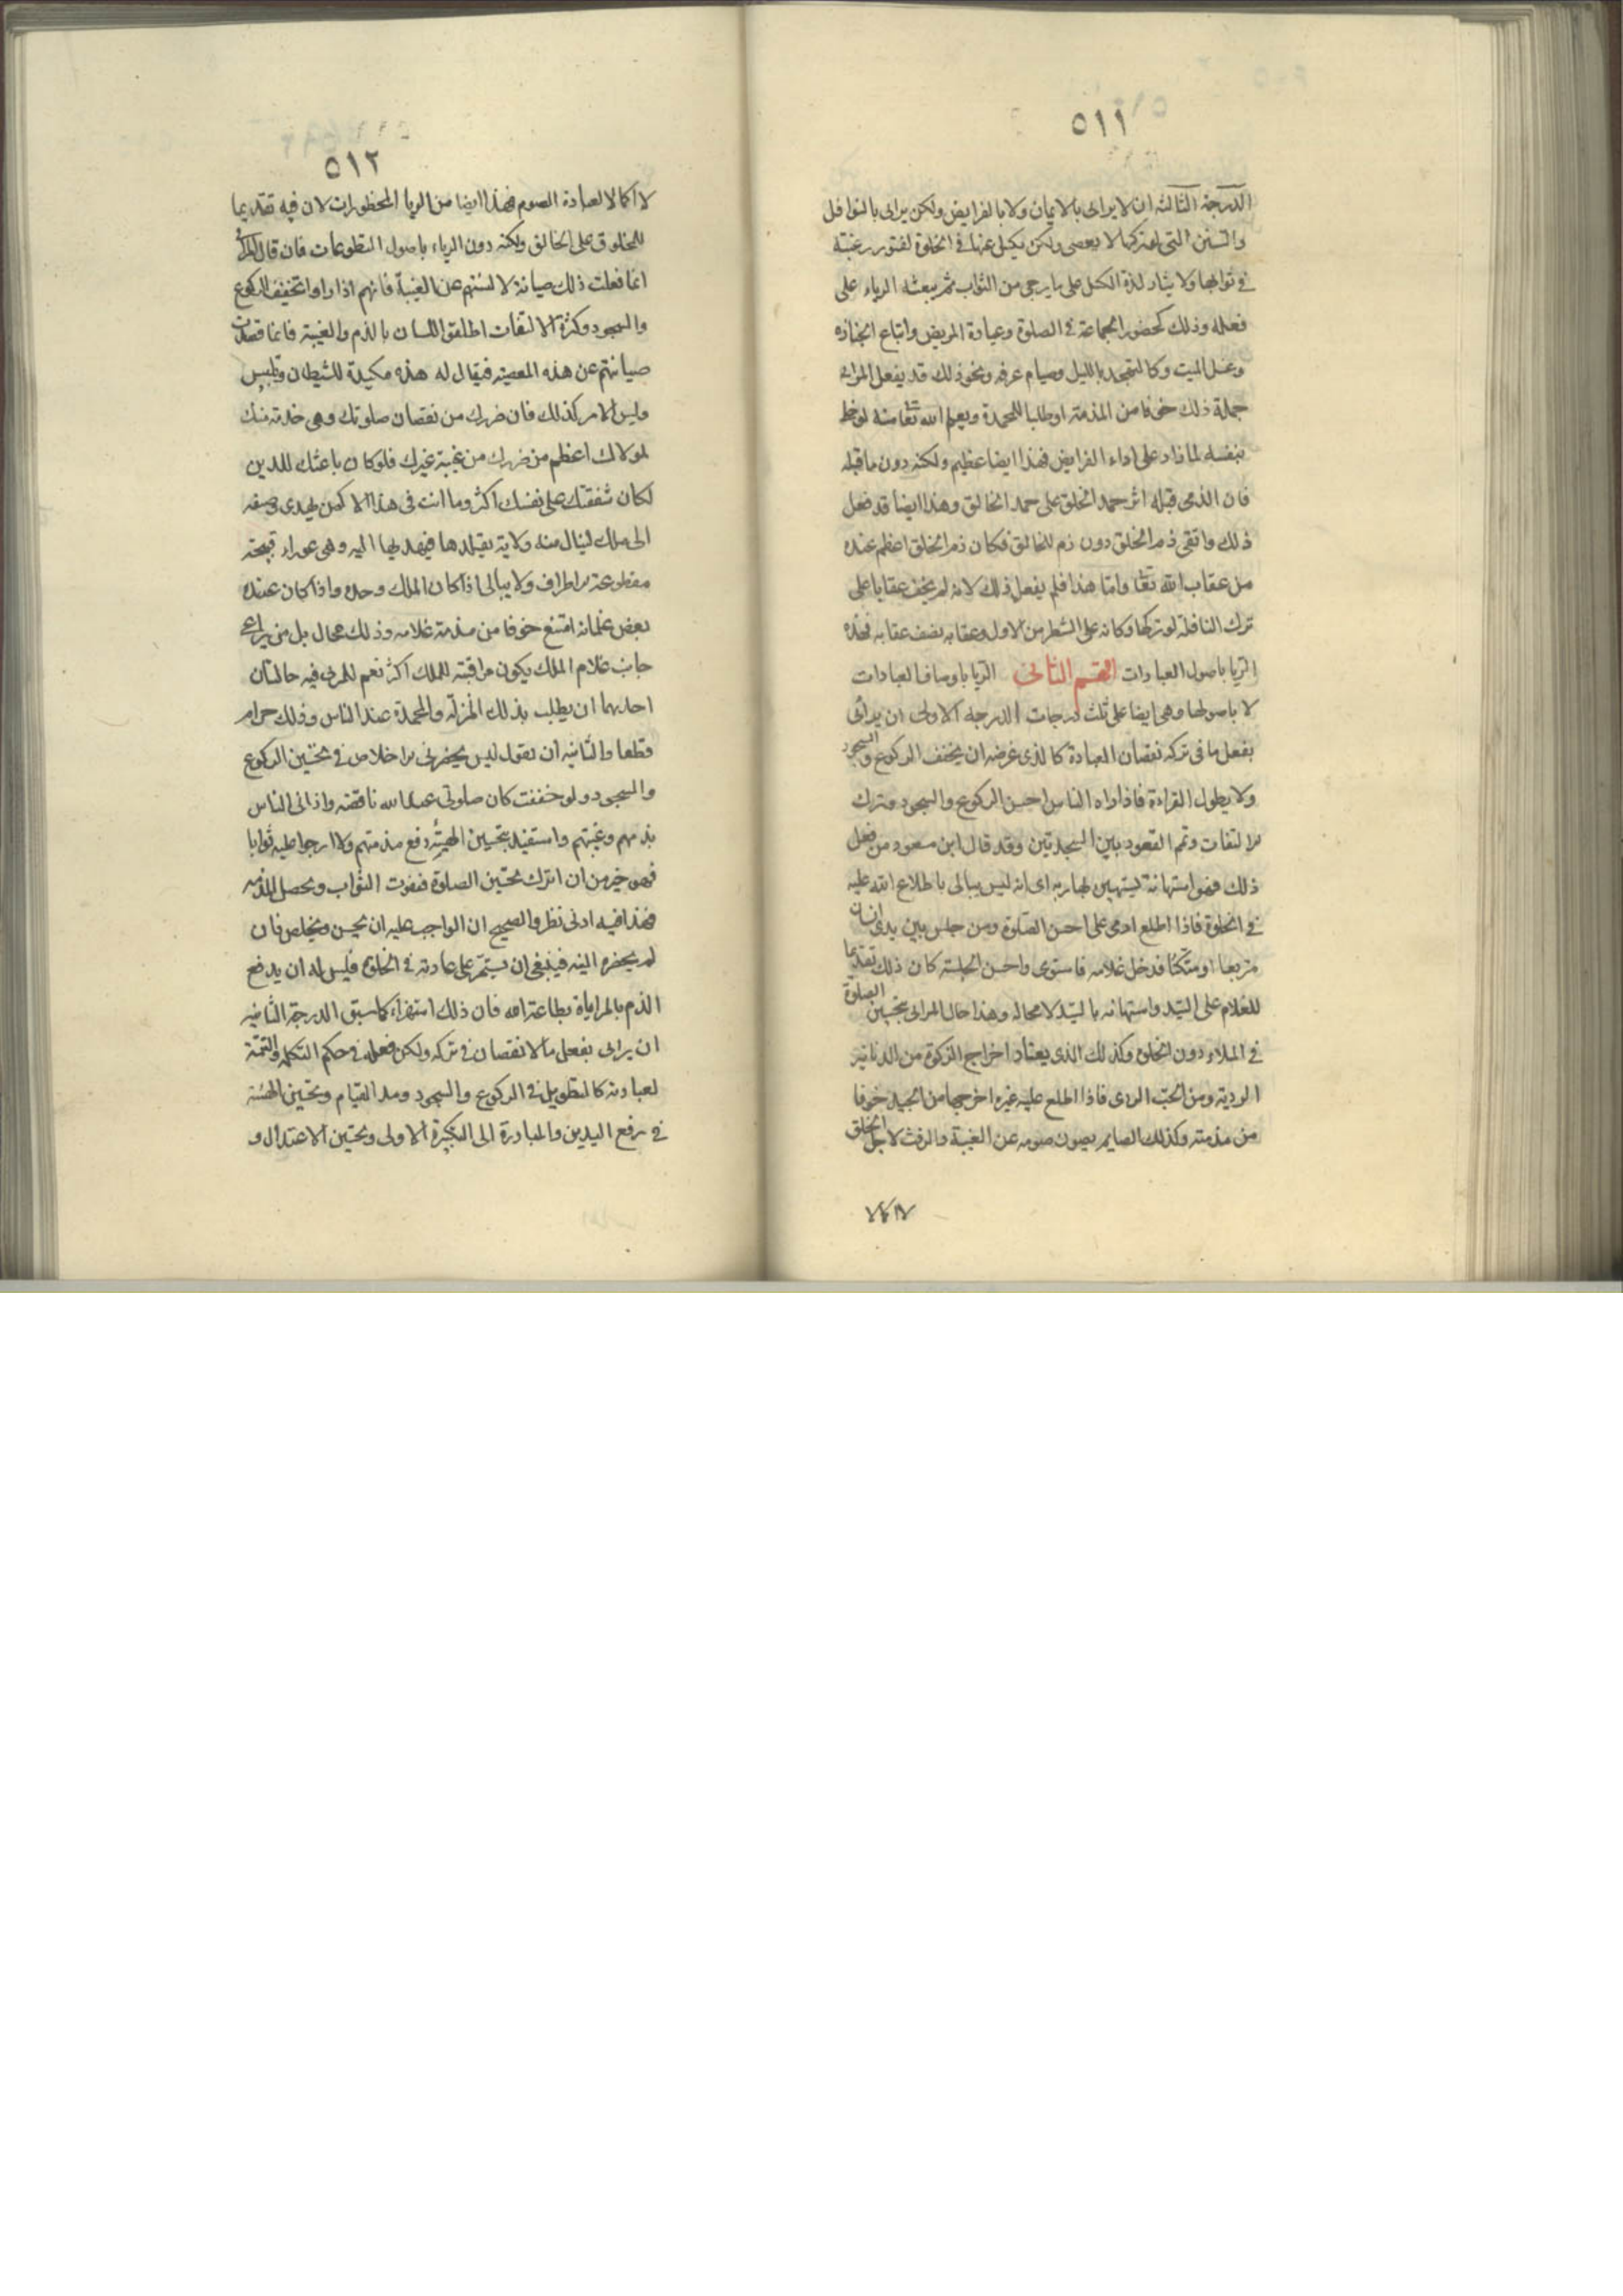 ٥١١
الدرجة الثالثة ان لا يرائى بالايمان ولا بالفرايض ولكن يرائى بالنوافل
والسنن التى لو تركها لا يعصى ولكن يكسل عنها فى الخلوة لفتور رغبته
فى ثوابها ولايثار لذة الكسل على ما يرجى من الثواب ثم يبعثه الرياء على
فعله وذلك كحضور الجماعة فى الصلوة وعيادة المريض واتباع الجنازه
وغسل الميت وكالتهجد بالليل وصيام عرفه ونحو ذلك قد يفعل المرائى
جملة ذلك خوفا من المذمة او طلبا للمحمدة ويعلم الله تعا منه لو خلا
بنفسه لما زاد على اداء الفرايض فهذا ايضا عظيم ولكنه دون ما قبله
فان الذى قبله اثر حمد الخلق على حمد الخالق وهذا ايضا قد فعل
ذلك واتقى ذم الخلق دون ذم الخالق فكان ذم الخلق اعظم عنده
من عقاب الله تعا واما هذا فلم يفعل ذلك لانه لم يخف عقابا على
ترك النافلة لو تركها وكانه على الشطر من الاول وعقابه نصف عقابه فهذه
الريا باصول العبادات القسم الثانى الريا باوصاف العبادات
لا باصولها وهى ايضا على ثلث درجات الدرجه الاولى ان يرائى
بفعل ما فى تركه نقصان العبادة كالذى غرضه ان يخفف الركوع والسجود
ولا يطول القراءة فاذا راه الناس احسن الركوع والسجود وترك
الالتفات وتمم القعود بين السجدتين وقد قال ابن مسعود من فعل
ذلك فهو استهانة يستهين بها ربه اى انه ليس يبالى باطلاع الله عليه
فى الخلوة فاذا اطلع ادمى على احسن الصلوة ومن جلس بين يدى انسان
متربعا او متكئا فدخل غلامه فاستوى واحسن الجلسة كان ذلك تقديما
للغلام على السيد واستهانه بالسيد لا محاله وهذا حال المرائى بتحسين الصلوة
فى الملاء دون الخلوة وكذلك الذى يعتاد اخراج الزكوة من الدنانير
الرديئه ومن الحب الردى فاذا اطلع عليه غيره اخرجها من الجيد خوفا
من مذمته وكذلك الصايم يصون صومه عن الغيبة والرفث لاجل الخلق
لا اكمالا
٥١٢
لا اكمالا لعبادة الصوم فهذا ايضا من الريا المحظورات لان فيه تقديما
للمخلوق على الخالق ولكنه دون الرياء باصول التطوعات فان قال المرائى
انما فعلت ذلك صيانة لالسنتهم عن الغيبة فانهم اذا راوا تخفيف الركوع
والسجود وكثرة الالتفات اطلقوا اللسان بالذم والغيبة فانما قصدت
صيانتهم عن هذه المعصيه فيقال له هذه مكيدة للشيطان وتلبيس
وليس الامر كذلك فان ضررك من نقصان صلوتك وهى خدمة منك
لمولاك اعظم من ضررك من غيبة غيرك فلو كان باعثك للدين
لكان شفقتك على نفسك اكثر وما انت فى هذا الا كمن يهدى وصيفه
الى ملك لينال منه ولاية يقيلدها فيهديها اليه وهى عوراء قبيحة
مقطوعة الاطراف ولا يبالى اذا كان الملك وحده واذا كان عنده
بعض غلمانه امتنع خوفا من مذمة غلامه وذلك محال بل من يراعى
جانب غلام الملك يكون مراقبته للملك اكثر نعم للمرائى فيه حالتان
احديهما ان يطلب بذلك المنزلة والمحمدة عند الناس وذلك حرام
قطعا والثانيه ان يقول ليس يحضرنى الاخلاص فى تحسين الركوع
والسجود ولو خففت كان صلوتى عند الله ناقصه واذانى الناس
بذمهم وغيبتهم واستفيد بتحسين الهيئة دفع مذمتهم ولا ارجوا عليه ثوابا
فهو خير من ان اترك تحسين الصلوة فيفوت الثواب وتحصل المذمه
فهذا فيه ادنى نظر والصحيح ان الواجب عليه ان يحسن ويخلص فان
لم يحضره النيه فينبغى ان يستمر على عادته فى الخلوة فليس له ان يدفع
الذم بالمراياة بطاعة الله فان ذلك استهزاء كما سبق الدرجة الثانيه
ان يرائى بفعل ما لا نقصان فى تركه ولكن فعله فى حكم التكمله والتتمة
لعبادته كالتطويل فى الركوع والسجود ومد القيام وتحسين الهيئة
فى رفع اليدين والمبادرة الى التكبيرة الاولى وتحسين الاعتدال و